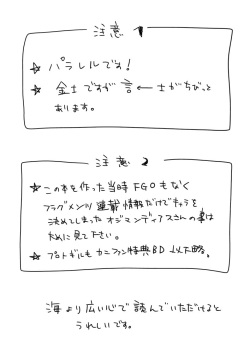 注意 1
☆ パラレルです!
☆ 金士ですが言←士がちびっと
あります。
注意 2
☆ この本を作った当時FGOもなく
フラグメンツ連載情報だけでキャラを
決めてしまったオジマンディアスさんの事は
ために見て下さい。
☆ プロトギルもカニファン特典BD以下略。
海より広い心で読んでいただけると
うれしいです。